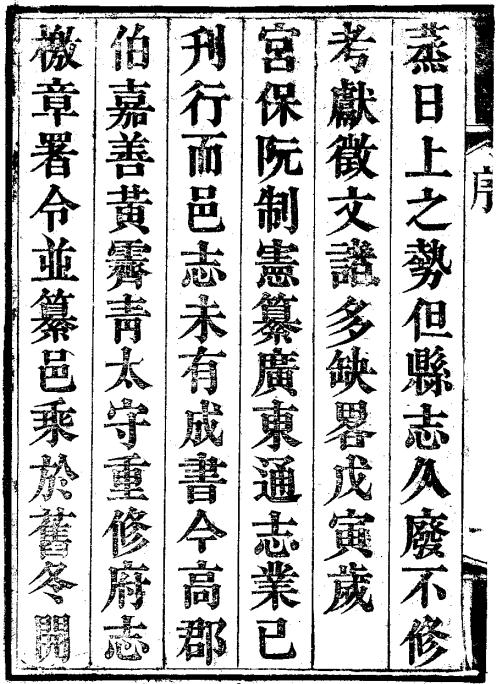 蒸日上之勢但縣志久廢不修
考獻徵文諮多缺畧戊寅歲
宮保阮制憲纂廣東通志業已
刋行而邑志未有成書今高郡
伯嘉善黃霽青太守重修府志
檄章署令並纂邑乘於舊冬開
序